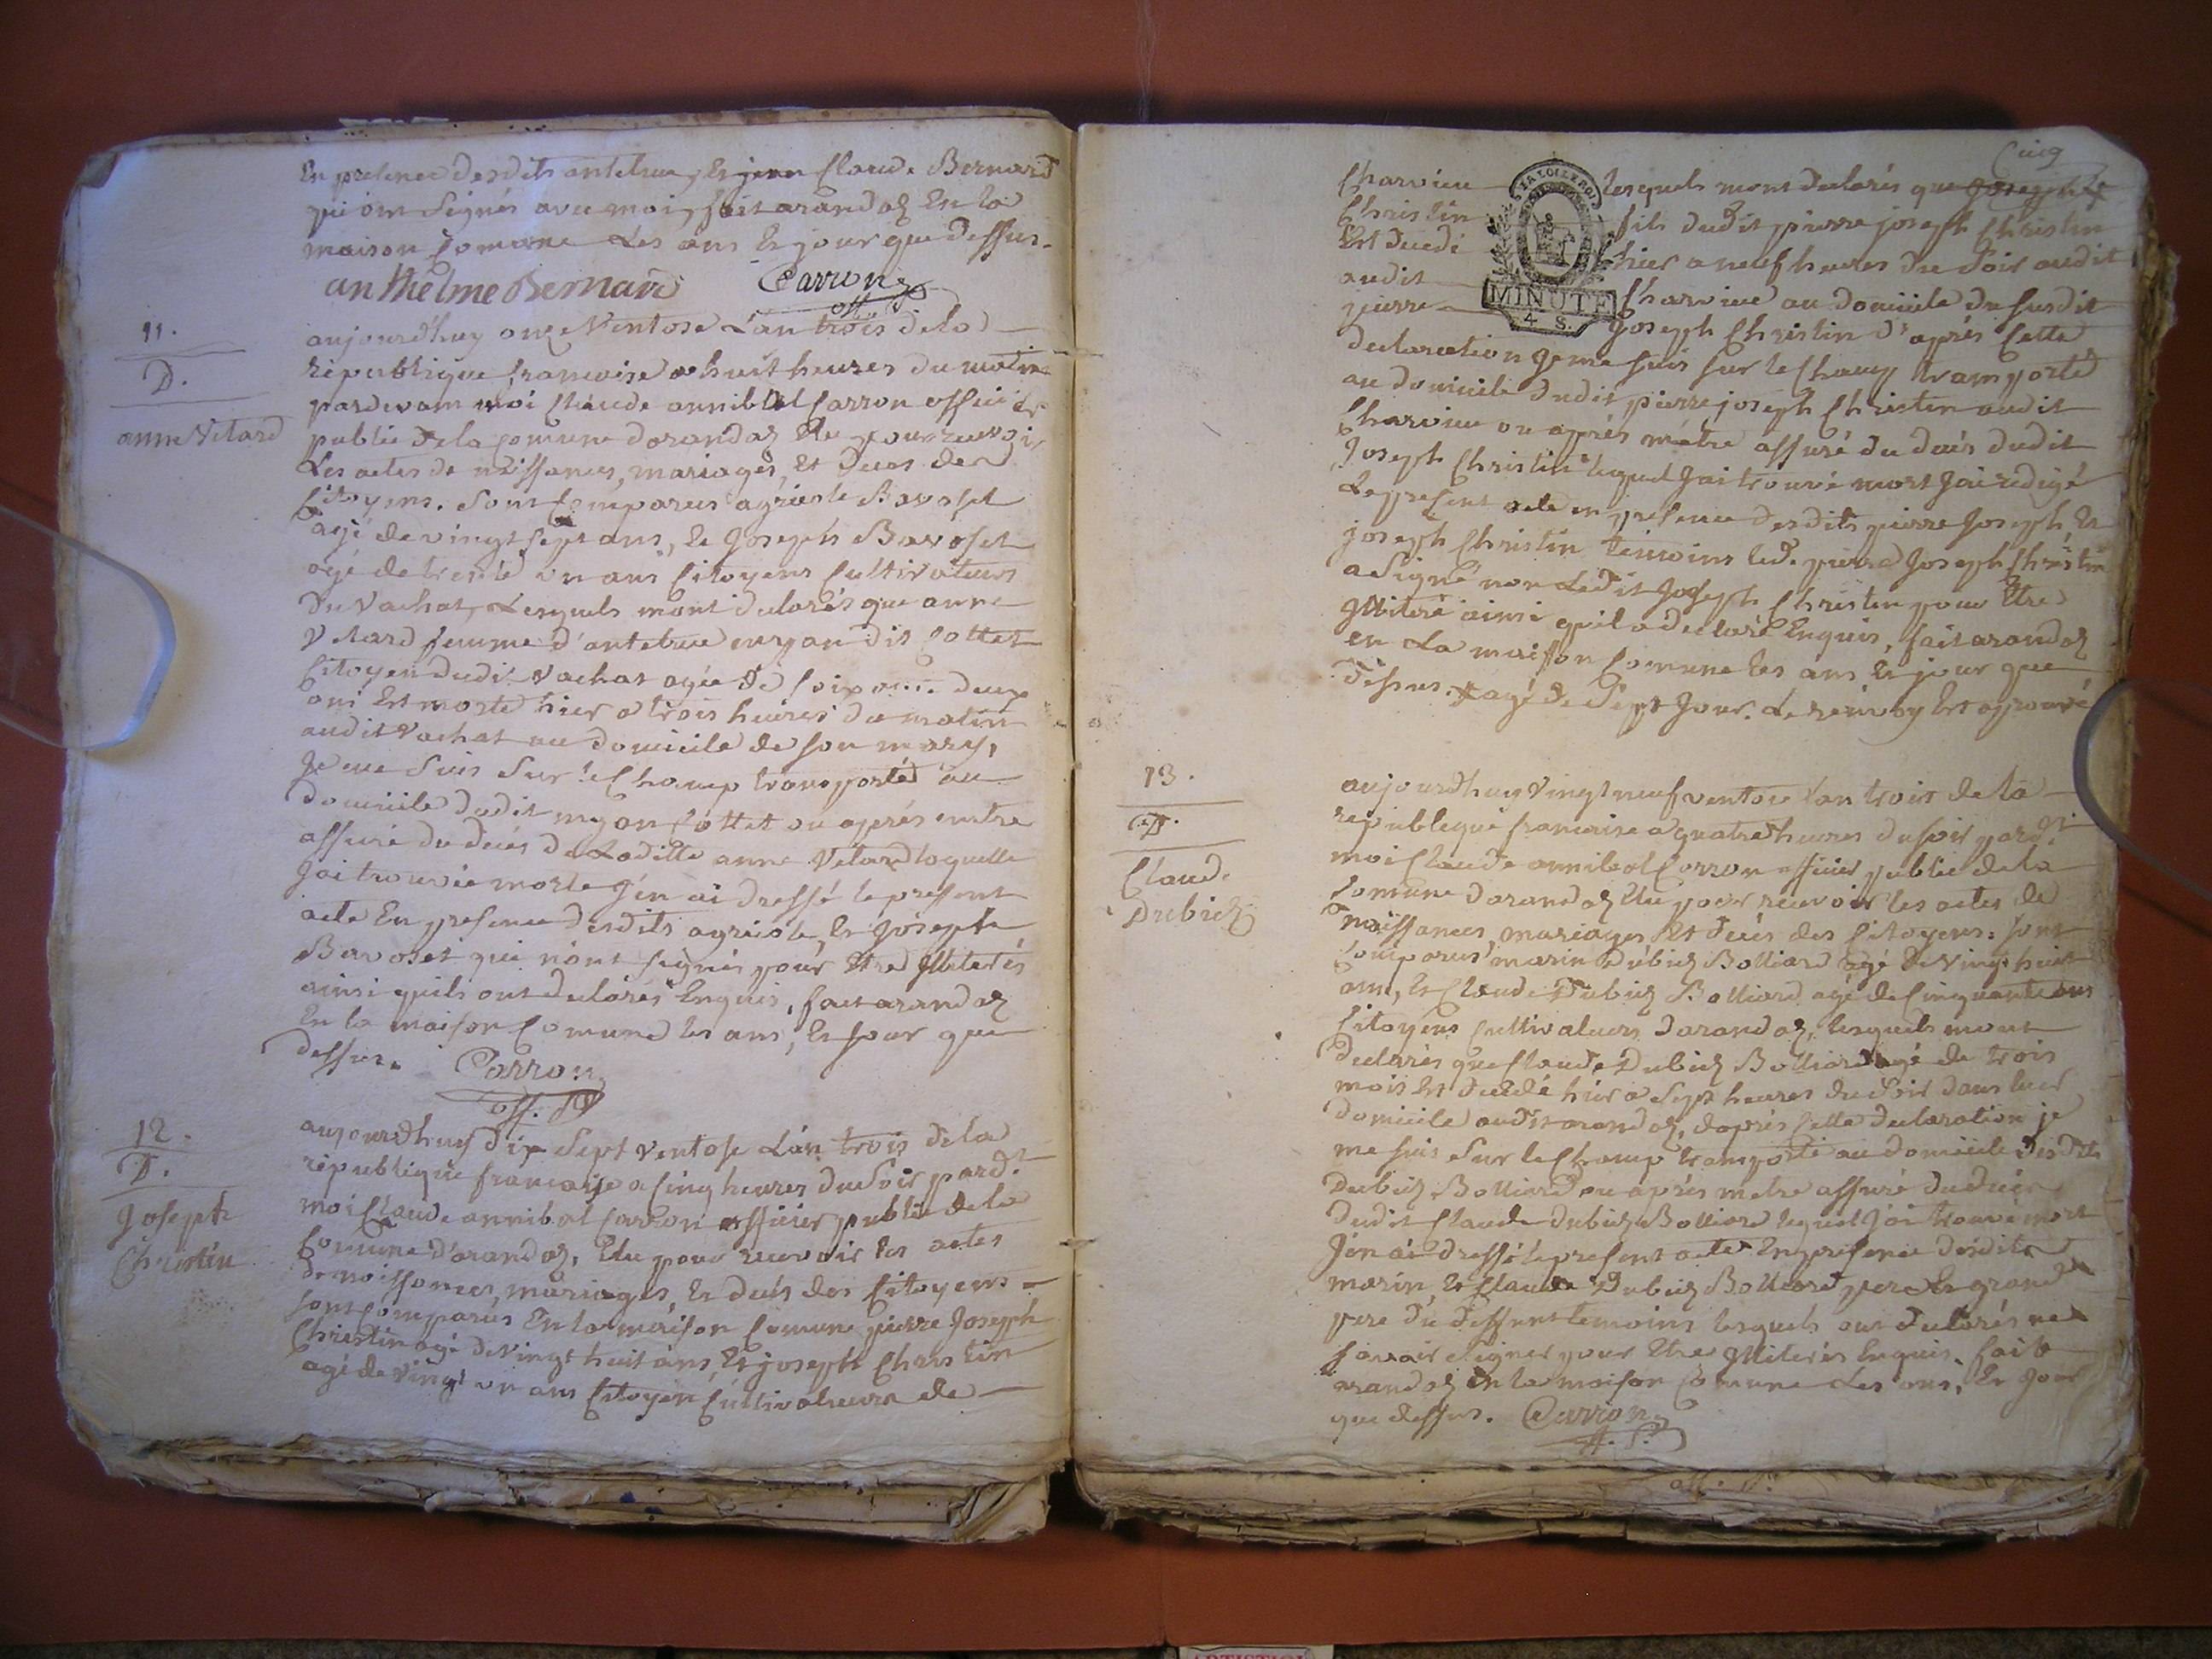 En presence desdits antelme, Et jean Claude Bernard
qui ont Signés avec moi, fait arandaz En la
maison Comune Les ans Et jour que dessus.
anthelme Bernard Carron
off. p.
11.
D.
anne Vetard
aujourdhuy onze Ventose L'an trois de la
republique francoise a huit heures du matin
pardevam moi Claude annibal Carron officier
public de la Comune darandaz Elu pour recevoir
Les actes de naissances, mariages, Et deces des
Citoyens. Sont Comparus agricole Bavoset
agé de vingt sept ans, Et Joseph Bavoset
agé de trente un ans Citoyens Cultivateurs
Du Vachat, Lesquels mont declarés que anne
Vetard femme d'antelme dit Cottet
Citoyen dudit Vachat agée de soixante deux
ans Est morte hier a trois heures du matin
audit Vachat au domicile de son mary,
Je me Suis Sur le Champ transporté au
domicile dudit Cottet ou aprés metre
assuré du deces de Laditte anne Vetard laquelle
Jai trouvée morte J'en ai dressé le present
acte En presence desdits agricole, Et Joseph
Bavoset qui n'ont signés pour Etre Illiterés
ainsi quils ont declarés Enquis, fait arandaz
En la maison Comune les ans, Et Jour que
dessus. Carron
off. p.
12.
D.
Joseph
Christin
aujourdhuy dix Sept Ventose L'an trois de la
republique francoise a Cinq heures du Soir pard.t
moi Claude annibal Carron officier public de la
Comune d'arandaz, Elu pour recevoir les actes
de naissances, mariages, Et deces des Citoyens
sont comparus En la maison Comune pierre Joseph
Christin agé de vingt huit ans, Et joseph Christin
agé de vingt un ans Citoyen Cultivateurs de
Cinq
Charvieu lesquels mont declarés que Joseph
Christin fils dudit pierre joseph Christin
Est decedé hier a neuf heures du Soir audit
audit Charvieu au domicile du susdit
pierre Joseph Christin D'aprés Cette
LA LOI LE ROI
MINUTE
4 S.
declaration Je me suis sur le Champ transporté
au domicile dudit pierre joseph Christin audit
Charvieu ou aprés metre assuré du deces dudit
Joseph Christin lequel Jai trouvé mort Jai redigé
Le present acte en presence desdits pierre Joseph, Et
joseph Christin temoins led. pierre Joseph Christin
a Signé non Ledit Joseph Christin pour Etre
Illiteré ainsi quil a declaré Enquis, fait arandaz
en La maison Comune les ans Et jour que
dessus. agé de Sept Jour. Le renvoy Est aprouvé
13.
D.
Claude
Dubiez
aujourdhuy vingt neuf ventose l'an trois de la
republique francoise a quatre heures du soir pard.t
moi Claude annibal Carron officier public de la
Comune darandaz Elu pour recevoir les actes de
naissances, mariages Et deces des Citoyens: sont
Comparus marin Dubiez Bolliard agé de vingt huit
ans, Et Claude Dubiez Bolliard agé de Cinquante ans
Citoyens Cultivateurs darandaz, lesquels mont
declarés que Claude Dubiez Bolliard agé de trois
mois Est decedé hier a Sept heures du Soir dans leur
domicile audit arandaz, daprés Cette declaration je
me suis Sur le Champ transporté au domicile desdits
Dubiez Bolliard ou aprés metre assuré du deces
dudit Claude Dubiez Bolliard lequel J'ai trouvé mort
J'en ai dressé le present acte En presence desdits
marin, Et Claude Dubiez Bolliard pere Et grand
pere du deffunt temoins lesquels ont declarés ne
savoir Signer pour Etre Illiterés Enquis, fait
arandaz En la maison Comune Les ans, Et Jour
que dessus. Carron
off. p.
off. p.